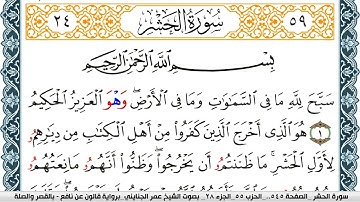 ٢٤ سُورَةُ الحَشْرِ ٥٩
بِسْمِ اللَّهِ الرَّحْمَٰنِ الرَّحِيمِ
سَبَّحَ لِلَّهِ مَا فِي السَّمَٰوَٰتِ وَمَا فِي الْأَرْضِ وَهْوَ الْعَزِيزُ الْحَكِيمُ
١ هُوَ الَّذِي أَخْرَجَ الَّذِينَ كَفَرُوا مِنْ أَهْلِ الْكِتَٰبِ مِن دِيَٰرِهِمُ
لِأَوَّلِ الْحَشْرِ مَا ظَنَنتُمُ أَن يَخْرُجُوا وَظَنُّوا أَنَّهُمُ مَانِعَتُهُمُ
سورة الحشر.. الصفحة ٥٤٥.. الحزب ٥٥.. الجزء ٢٨ بصوت الشيخ عمر الجنايني.. برواية قالون عن نافع - بالقصر والصلة